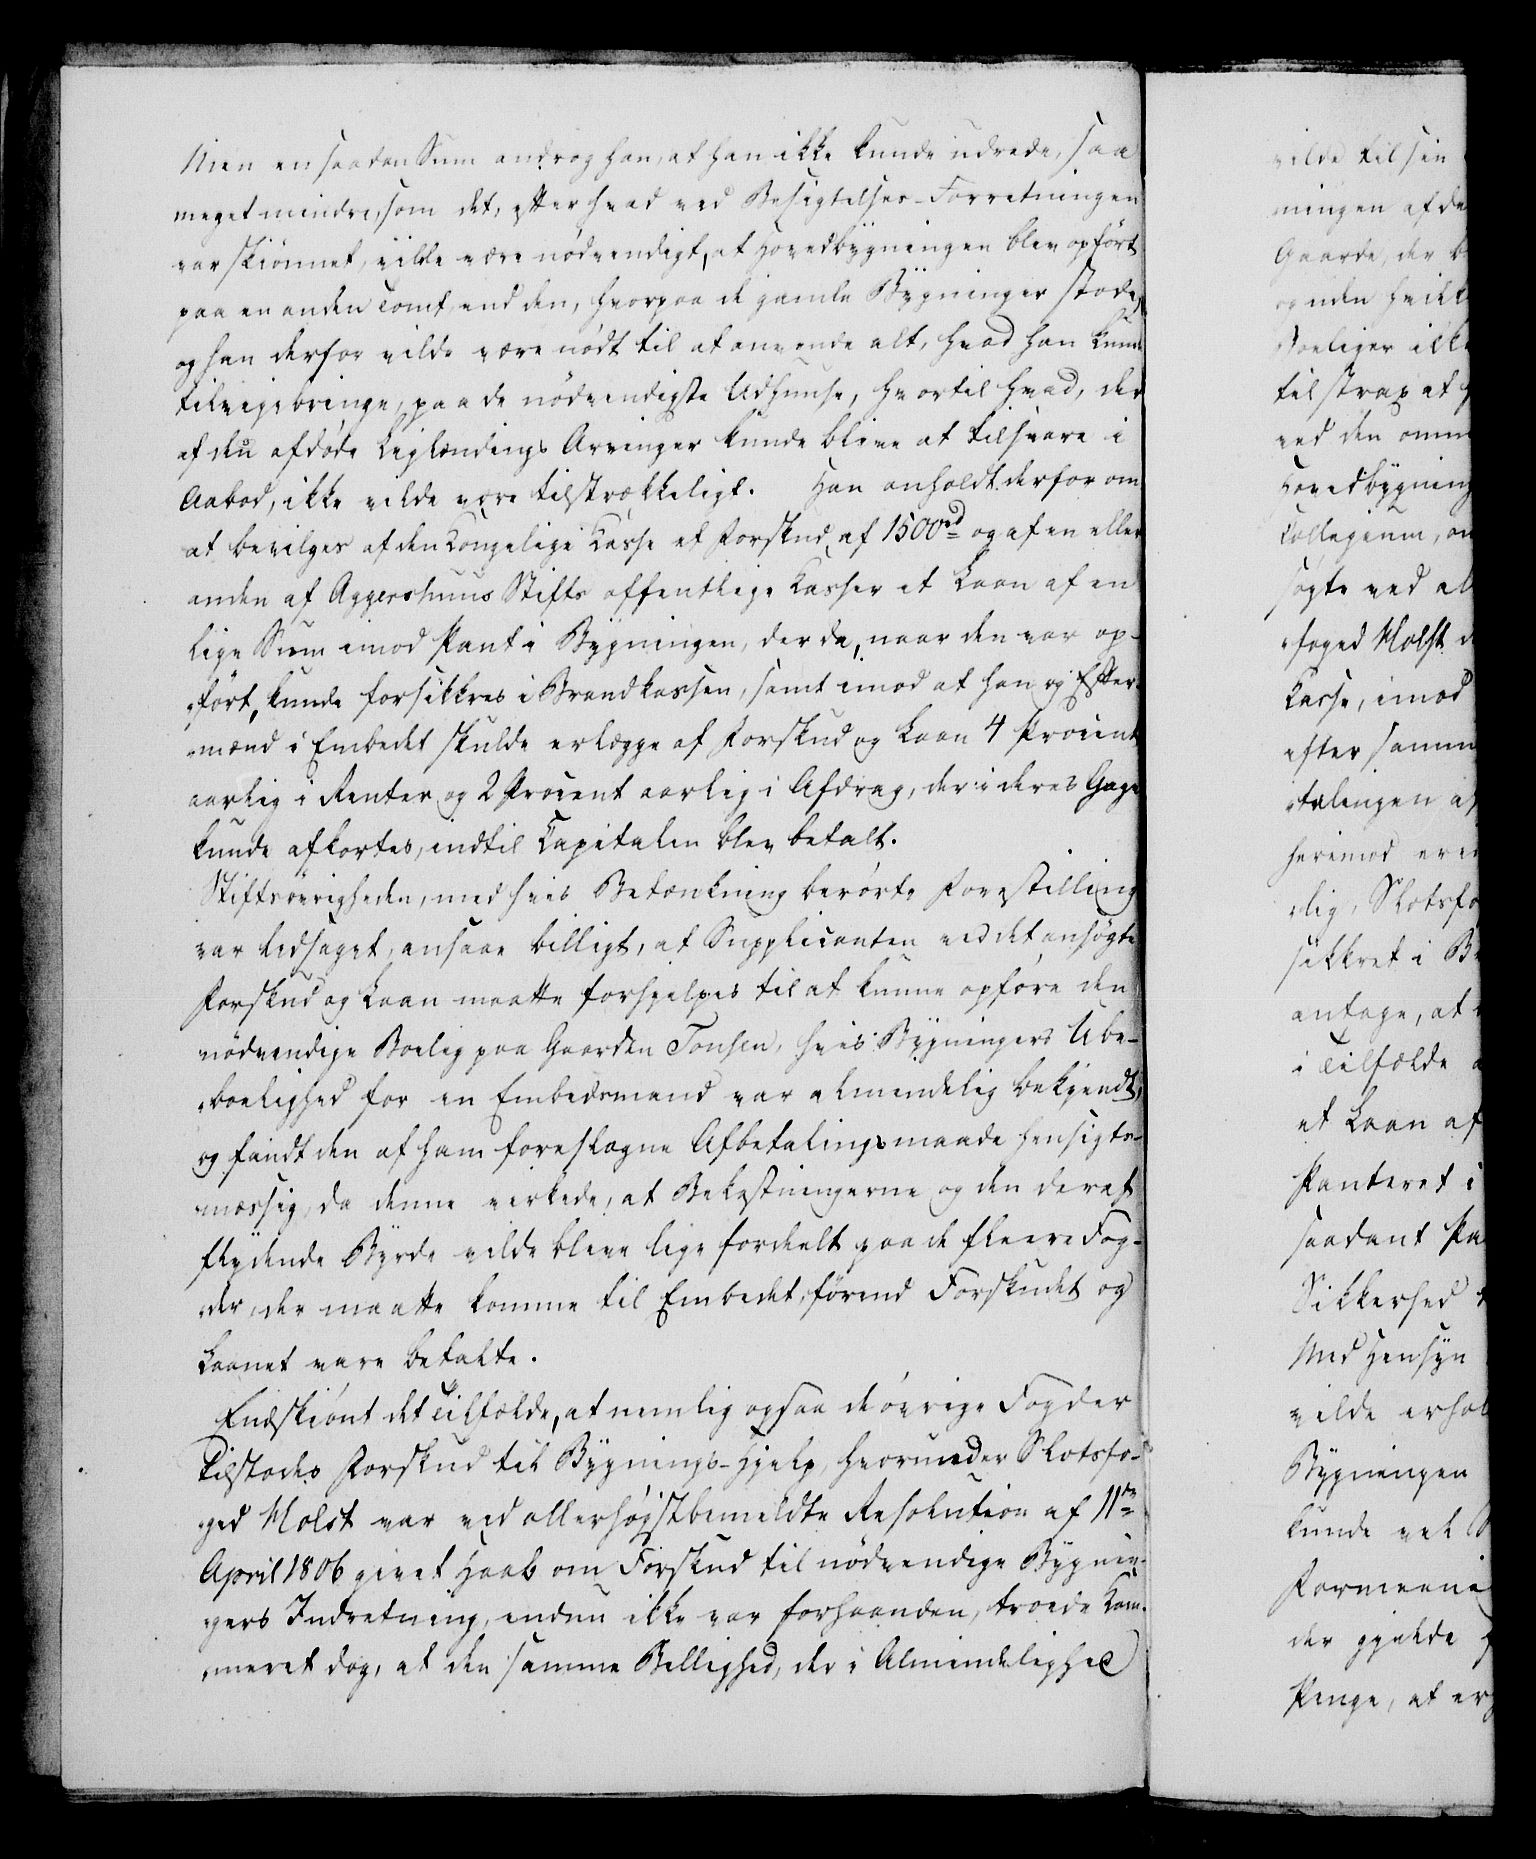 Men en saadan Sum androg han, at han ikke kunde udrede, saa
meget mindre, som det, efter hvad ved Besigtelses-Forretningen
var skiønnet, vilde være nødvendigt, at Hovedbygningen blev opført
paa en anden Tomt, end den, hvorpaa de gamle Bygninger stode,
og han derfor vilde være nødt til at anvende alt, hvad han kunde
tilvejebringe, paa de nødvendigste Udhuuse, hvortil hvad, der
af den afdøde Leylændings Arvinger kunde blive at tilsvare i
Aabod, ikke vilde være tilstrækkeligt. Han anholdt derfor om
at bevilges af den Kongelige Kasse et Forskud af 1500 rd og af en eller
anden af Aggershuus Stifts offentlige Kasser et Laan af en
lige Sum imod Pant i Bygningen, der da, naar den var op-
ført, kunde forsikkres i Brandkassen, samt imod at han og Efter-
mænd i Embedet skulde erlægge af Forskud og Laan 4 Procent
aarlig i Renter og 2 Procent aarlig i Afdrag, der i deres Gage
kunde afkortes, indtil Capitalen blev betalt.
Stiftsøvrigheden, med hvis Betænkning berørte Forestilling
var ledsaget, ansaae billigt, at Supplicanten ved det ansøgte
Forskud og Laan maatte forhjelpes til at kunne opføre den
nødvendige Boelig paa Gaarden Tonsen, hvis Bygningers Ube-
boelighed for en Embedsmand var almindelig bekjendt,
og fandt den af ham foreslagne Afbetalingsmaade hensigts-
mæssig, da denne virkede, at Bekostningerne og den deraf
flydende Byrde vilde blive lige fordeelt paa de fleere Fog-
der, der maatte komme til Embedet, førend Forskudet og
Laanet vare betalte.
Endskiønt det Tilfælde, at nemlig ogsaa de øvrige Fogder
tilstodes Forskud til Bygnings-Hjelp, hvorunder Slotsfo-
ged Holst var ved allerhøjstbemeldte Resolution af 11te
April 1806 givet Haab om Forskud til nødvendige Bygnin-
gers Indretning, endnu ikke var forhaanden, troede Kam-
meret dog, at den samme Billighed, der i Almindelighed
vilde til sin
ningen af de
Gaarde, der b
og uden hvilk
Boeliger ikk
til strax at
ved den omm
Hovedbygning
Collegium, om
søgte ved al
foged Holst d
Kasse, imod
efter samm
talingen af
herimod er
lig, Slotsfo
sikkret i Br
antage, at
i Tilfælde a
et Laan af
Panteret i
saadant Pa
Sikkerhed
Med Hensyn
vilde erhol
Bygningen
kunde vel
Formeening
der gjelde
Penge, at er